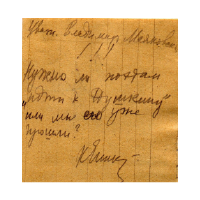 Уваж. Владимир Маяковс
Нужно ли поэтам
"идти к Пушкину"
или мы его уже
прошли?